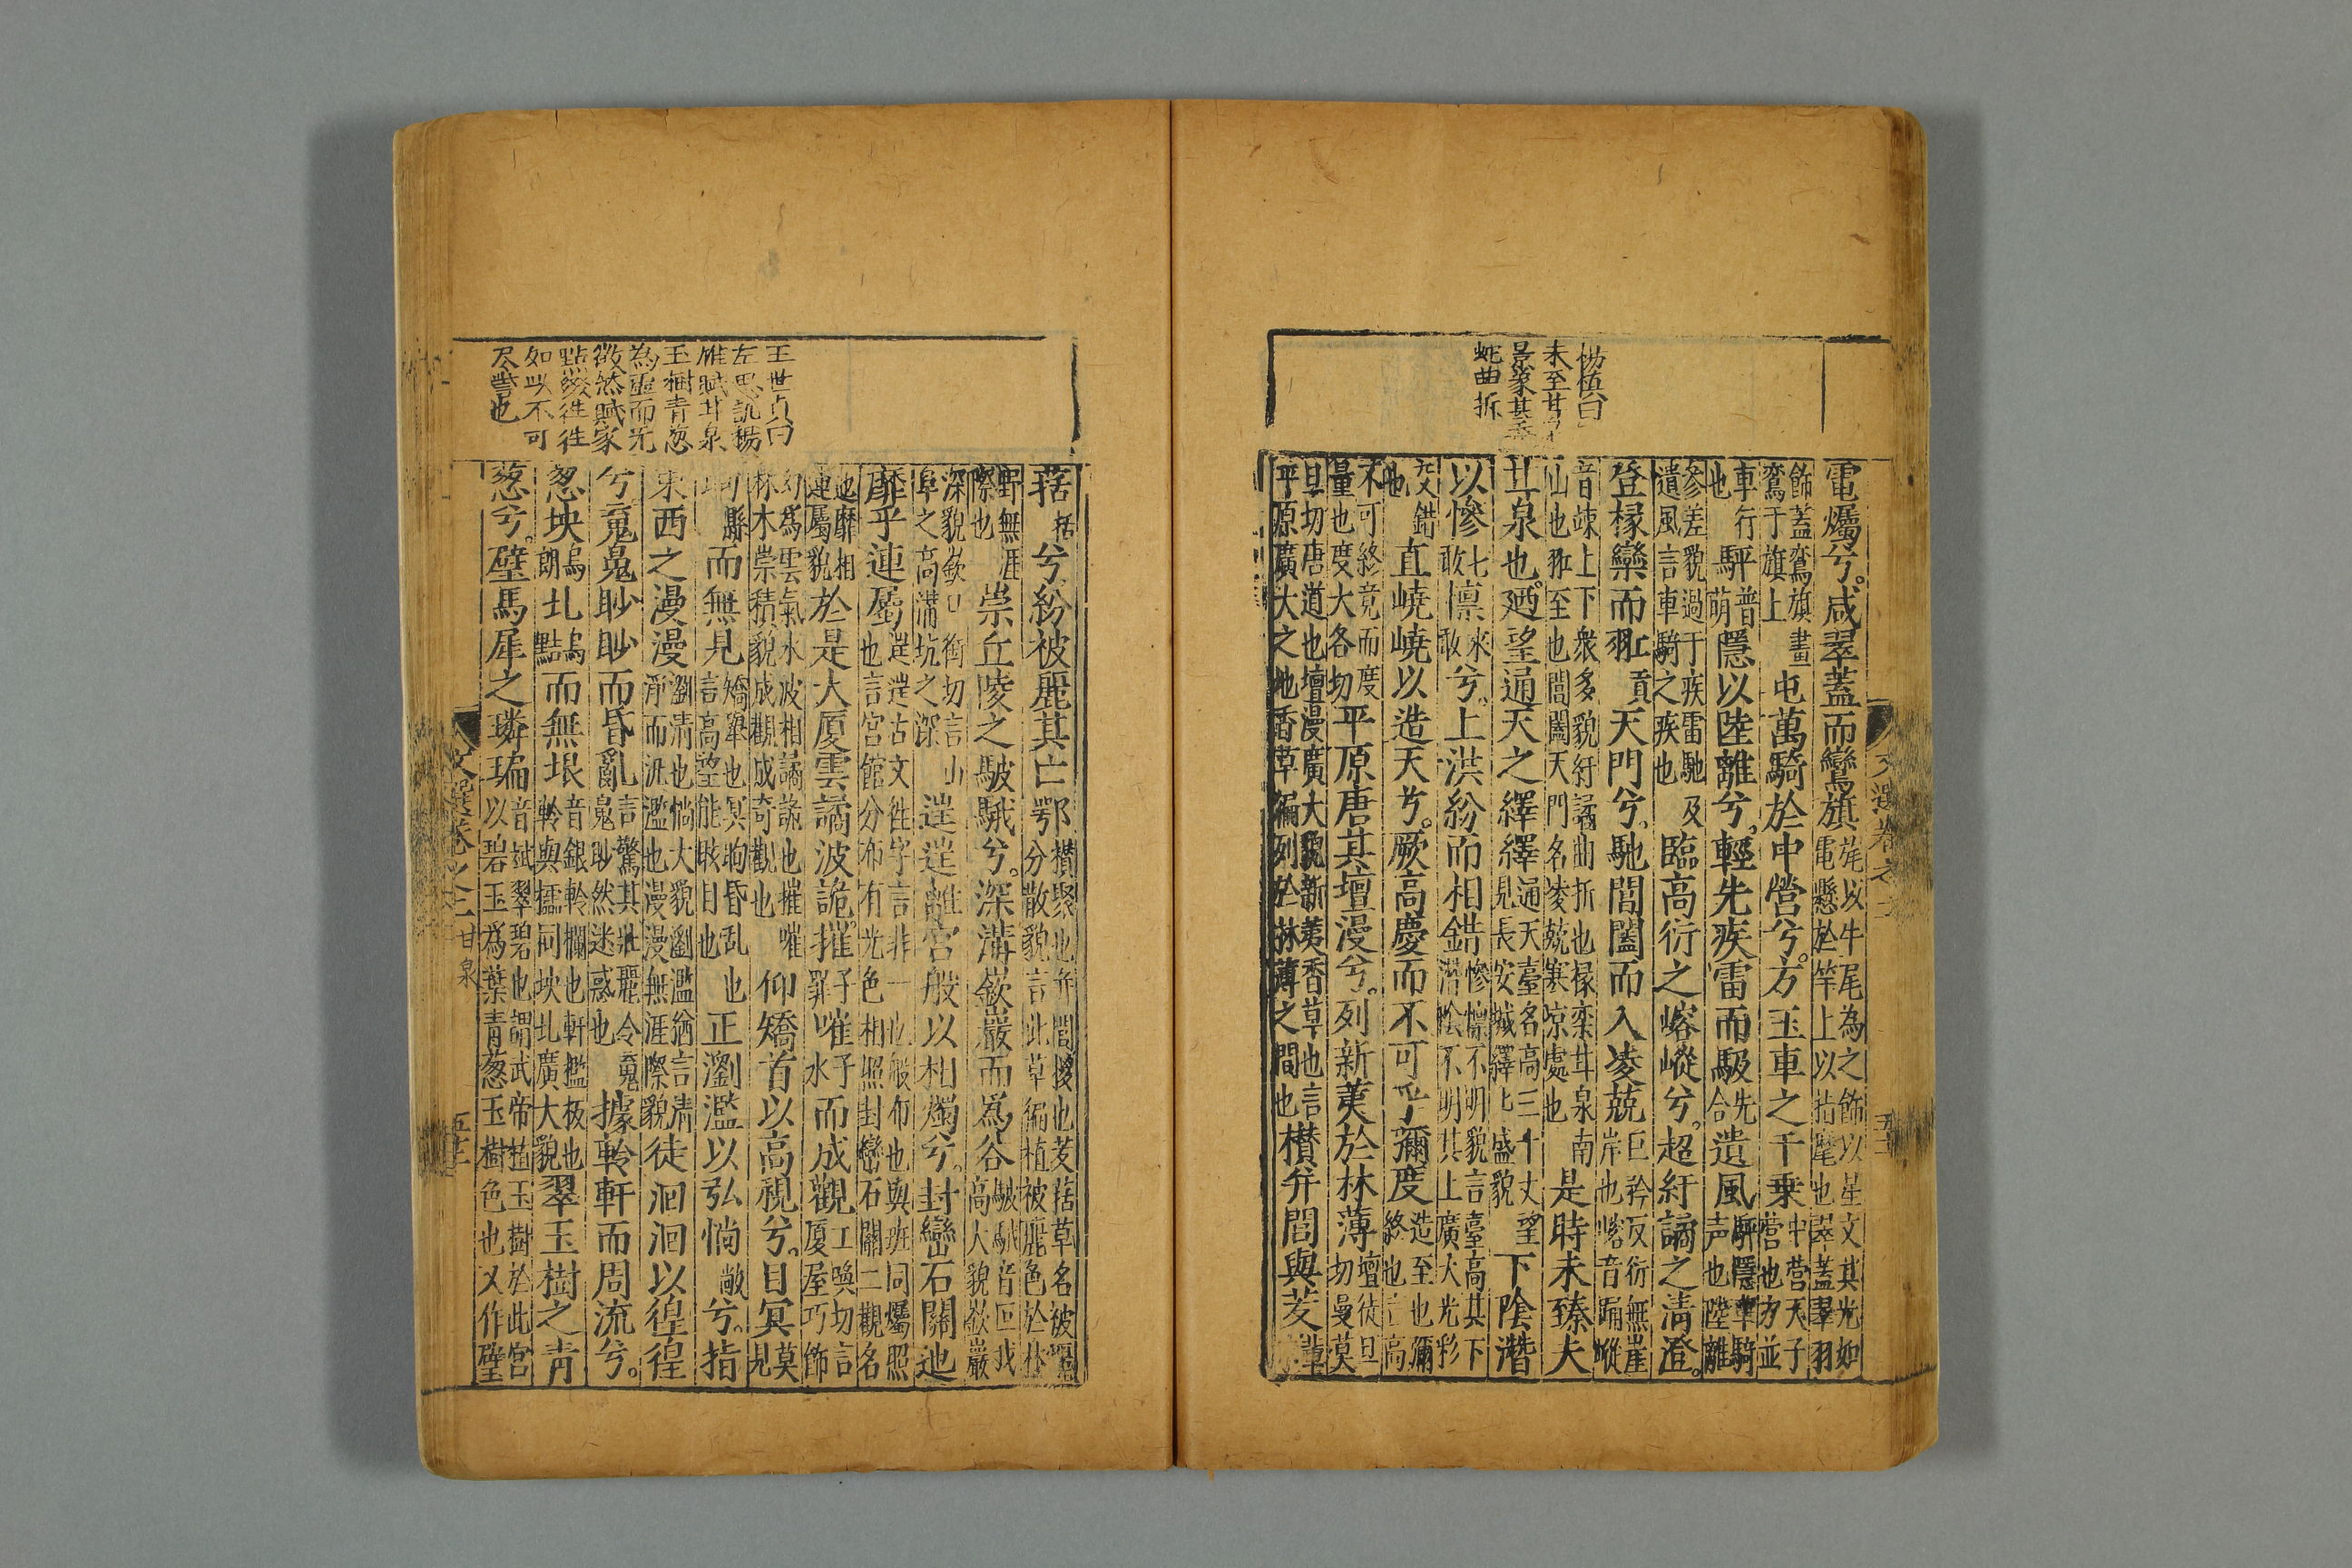 楊慎曰
未至甘泉
景象甚委
蛇曲折
電爥兮。咸翠蓋而鸞旗旄以牛尾為之飾以星文其光如電懸於竿上以指麾也翠蓋翠羽
飾蓋鸞旗畫鸞于旗上屯萬騎於中營兮。方玉車之千乘中营天子营也方並
車行也駍普萌隱以陸離兮。輕先疾雷而馺先合遺風駍隱車騎声也陸離
參差貌過于疾雷馳遺風言車騎之疾也及臨高衍之嵱嵷兮。超紆譎之清澄。
登椽欒而羾貢天門兮。馳閶闔而入凌兢巨矜反衍無崖岸也嵱音踊嵷
音竦上下衆多貌紆譎曲折也椽栾甘泉南山也羾至也閶闔天門名凌兢寒凉處也是時未臻夫
甘泉也廼望通天之繹繹通天臺名高三十丈望見長安城繹繹盛貌下陰潛
以慘七敢懍來敢兮。上洪紛而相錯慘懍不明貌言臺高其下潛陰不明其上廣大光彩
交錯也直嶢嶢以造天兮。厥高慶而不可乎彌度造至也彌終也言高
不可終竟而度量也度大各切平原唐其壇漫兮。列新荑於林薄壇徒旦切曼莫
旦切唐道也壇漫廣大貌新荑香草也言平原廣大之地香草徧列於林薄之間也櫕并閭與茇葀
文選卷之三
王世貞曰
左思訛楊
雄賦甘泉
玉樹青葱
為虚而无
徵然賦家
點綴往往
如此不可
尽訾也
葀括兮。紛被麗其亡鄂櫕聚也并閭椶也茇葀草名被麗分散貌言此草徧植被麗色於林
野無涯際也崇丘陵之駊騀兮。深溝嶔巖而爲谷駊騀音叵我高大貌嶔巖
深貌嶔口銜切言山阜之高溝坑之深𨓹𨓹離宮般以相燭兮。封巒石關迆
靡乎連屬𨓹𨓹古文往字言非一也般布也與班同爥照也言宮館分布有光色相照封巒石關二觀名
迆靡相連屬貌於是大厦雲譎波詭。摧子罪嗺子水而成觀工喚切言厦屋巧飾
幻為雲氣水波相譎詭也摧嗺林木崇積貌成觀成奇觀也仰矯首以高視兮。目冥莫見
眴縣而無見矯舉也冥眴昏乱也言高望能眩目也正瀏濫以弘惝敞兮。指
東西之漫漫瀏清也惝大貌瀏濫猶言清淨而汎濫也漫漫無涯際貌徒洄洄以徨徨
兮。魂䰟眇眇而昏亂言驚其壯麗令䰟䰟眇然迷惑也據軨軒而周流兮。
忽坱烏朗圠烏黠而無垠音銀軨欄也軒檻板也軨與櫺同坱圠廣大貌翠玉樹之青
葱兮。璧馬犀之瞵㻞音斌翠碧也謂武帝植玉樹於此宮以碧玉為葉青葱玉樹色也又作璧
文選卷之三 甘泉